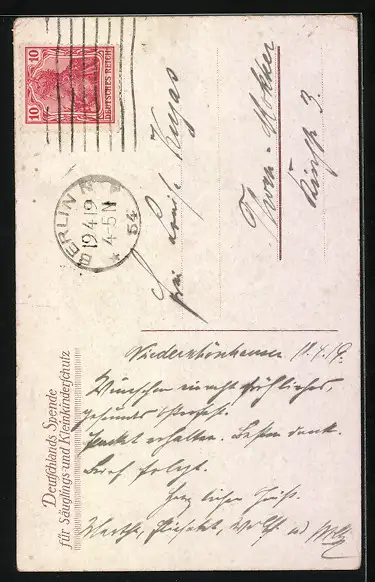 10 DEUTSCHES REICH 10
BERLIN
19.4.19
4-5 N
* 54
Frau Louise
Thorn-Mokker
3.
Deutschlands Spende
für Säuglings- und Kleinkinderschutz
Niederschönhausen 19.4.19.
Wünschen recht fröhliches,
gesundes Osterfest.
Packet erhalten. Besten Dank.
Brief folgt.
Herzlichen Gruß.
Martha,